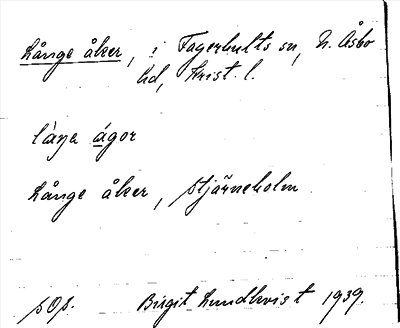 Långe åker, i Fagerhults sn, N. Åsbo
hd, Krist. l.
låŋa ágor
Långe åker, Stjärneholm
sOs.
Birgit Lundkvist 1939.